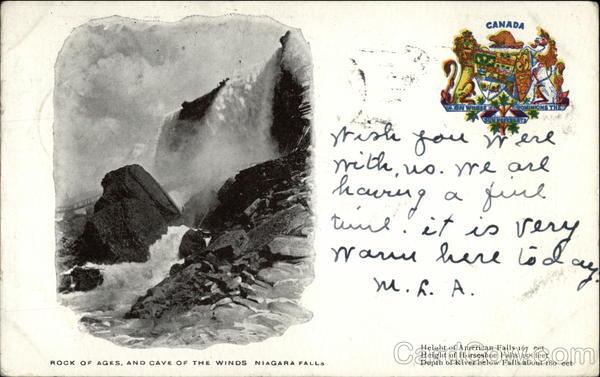 CANADA
Wish you were
with, us. we are
having a fine
time. it is very
warm here today.
M. L. A.
ROCK OF AGES, AND CAVE OF THE WINDS NIAGARA FALLS
Height of American Falls 167 eet
Height of Horseshoe Falls 158 feet
Depth of River below Falls about 180 eet